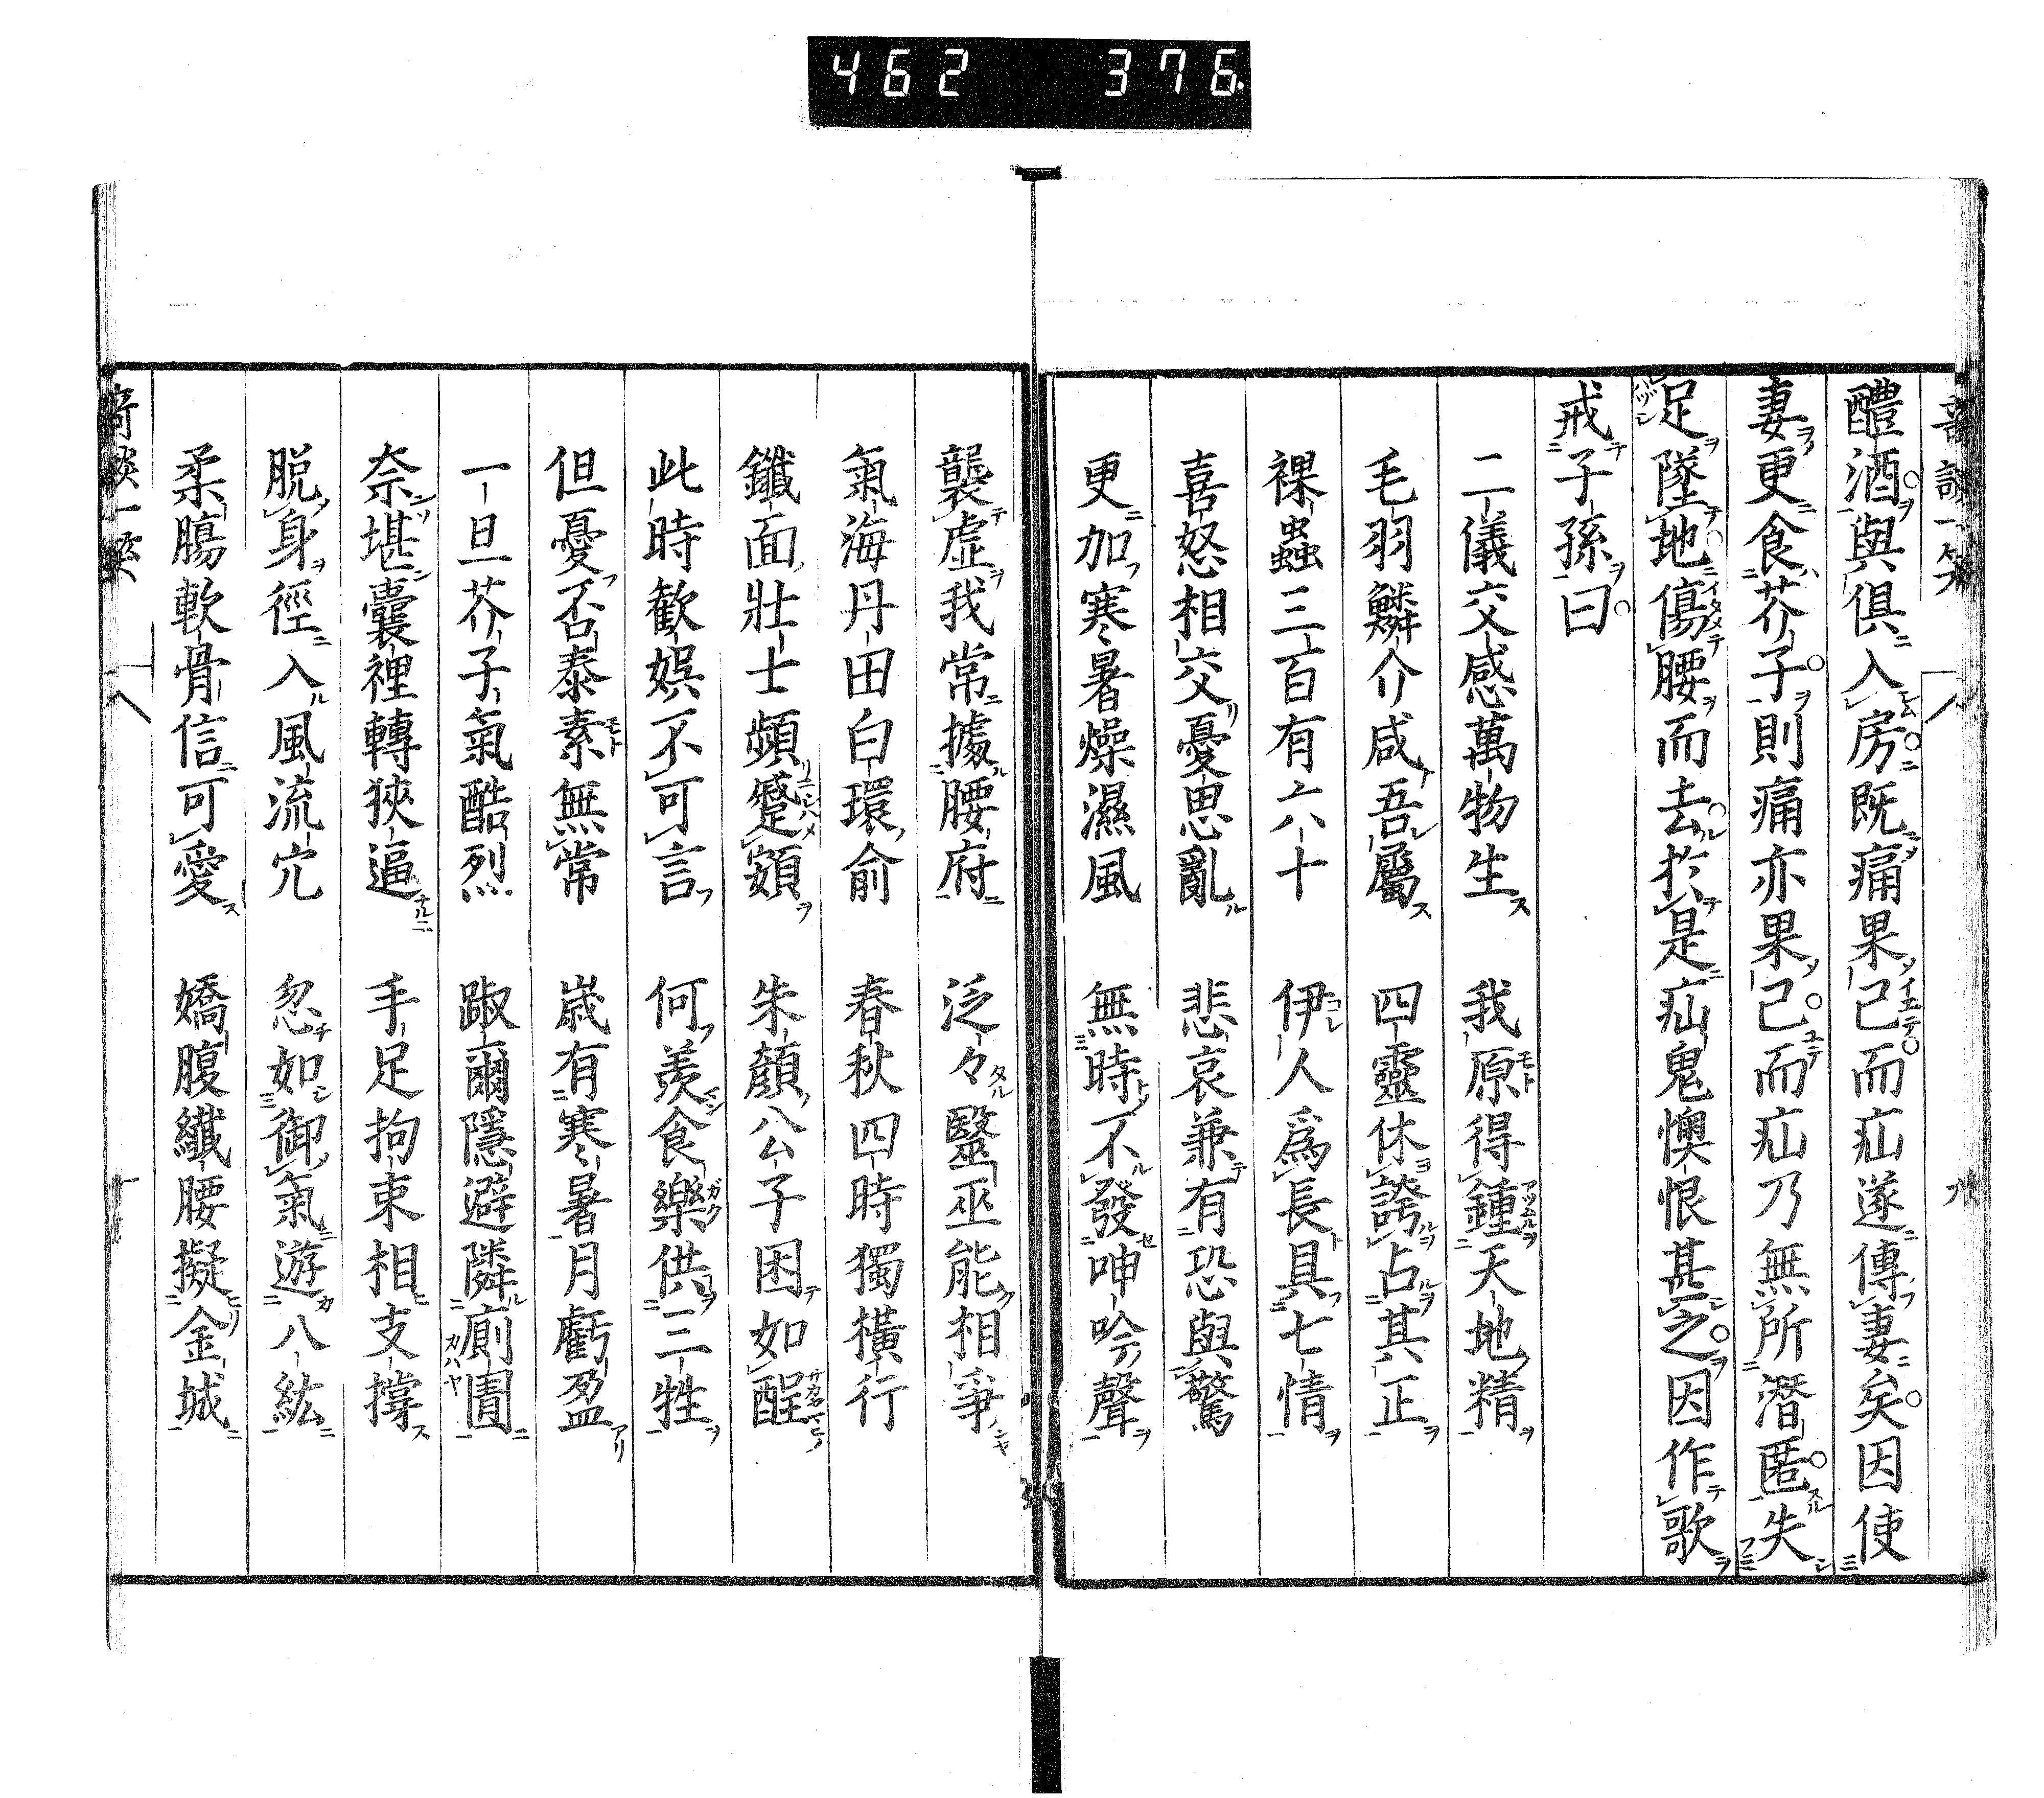 462 376
醴酒與俱入房既痛果已而疝遂傳妻矣因使
妻更食芥子則痛亦果已而疝乃無所潜匿失
足墜地傷腰而去於是疝鬼懊恨甚之因作歌
戒子孫曰
二儀交感萬物生 我原得鍾天地精
毛羽鱗介咸吾屬 四靈休誇占其正
裸蟲三百有六十 伊人爲長具七情
喜怒相交憂思亂 悲哀兼有恐與驚
更加寒暑燥濕風 無時不發呻吟聲
襲虛我常據腰府 泛々醫巫能相爭
氣海丹田白環俞 春秋四時獨横行
鐵面壯士頻蹙頞 朱顏公子困如酲
此時歡娯不可言 何羨食樂供三牲
但憂否泰素無常 歲有寒暑月虧盈
一旦芥子氣酷烈 踧爾隱避隣廁圊
奈堪囊裡轉狹逼 手足拘束相支撐
脱身徑入風流穴 忽如御氣遊八紘
柔腸軟骨信可愛 嬌腹纖腰擬金城